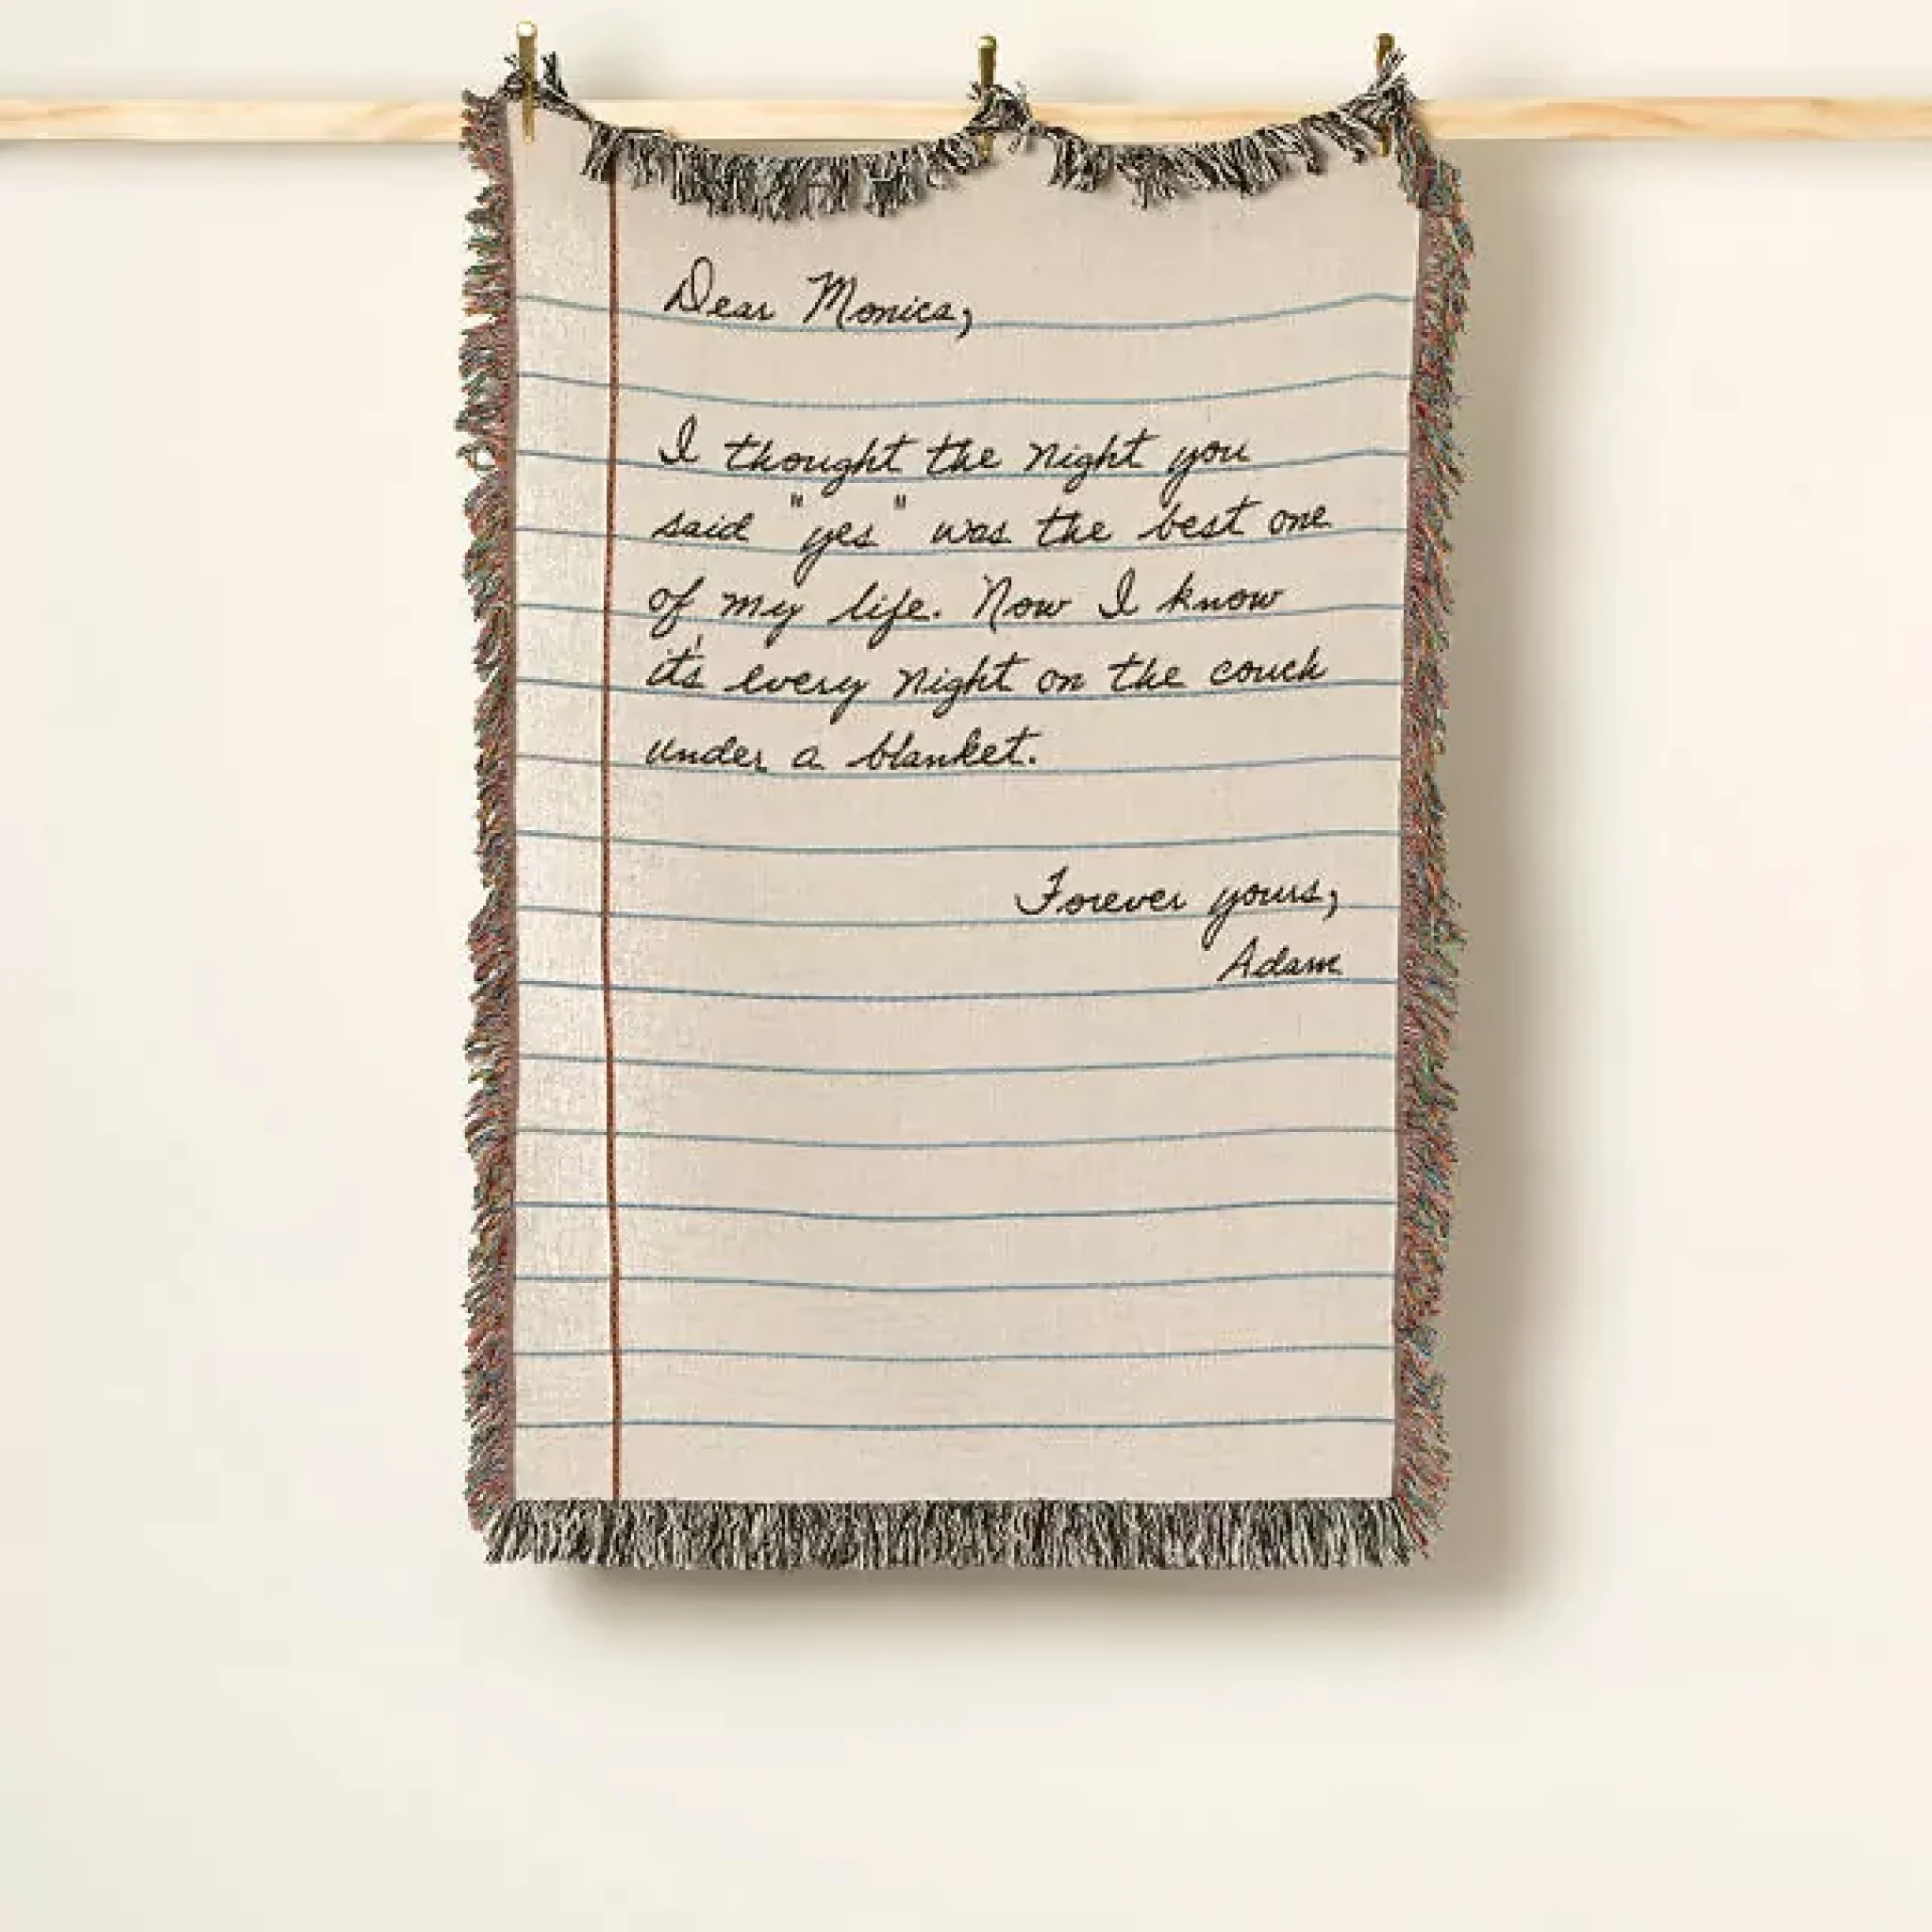 Dear Monica,
I thought the night you
said "yes" was the best one
of my life. Now I know
it's every night on the couch
under a blanket.
Forever yours,
Adam